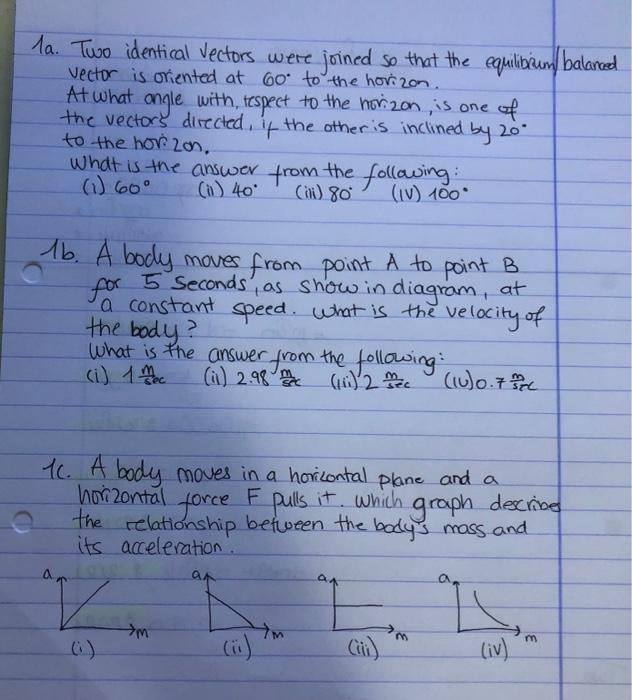 1a. Two identical vectors were joined so that the equilibrium/balanced
vector is oriented at 60° to the horizon.
At what angle with, respect to the horizon, is one of
the vectors directed, if the other is inclined by 20°
to the horizon.
What is the answer from the following:
(i) 60° (ii) 40° (iii) 80° (iv) 100°
1b. A body moves from point A to point B
for 5 seconds, as show in diagram, at
a constant speed. What is the velocity of
the body?
What is the answer from the following:
(i) 1 m/sec (ii) 2.98 m/sec (iii) 2 m/sec (iv) 0.7 m/sec
1c. A body moves in a horizontal plane and a
horizontal force F pulls it. Which graph describes
the relationship between the body's mass and
its acceleration.
a a a a
m m m m
(i) (ii) (iii) (iv)